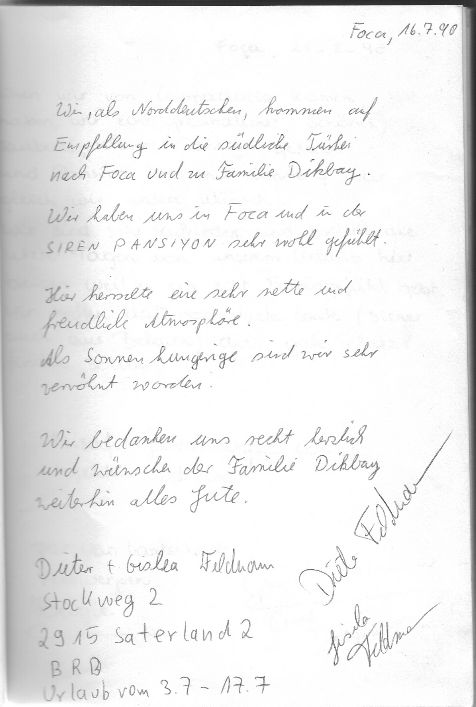 Foca, 16.7.90
Wir, als Norddeutschen, kommen auf
Empfehlung in die südliche Türkei
nach Foca und zu Familie Dikbay.
Wir haben uns in Foca und in der
SIREN PANSIYON sehr wohl gefühlt.
Hier herrschte eine sehr nette und
freundliche Atmosphäre.
Als Sonnenhungrige sind wir sehr
verwöhnt worden.
Wir bedanken uns recht herzlich
und wünschen der Familie Dikbay
weiterhin alles Gute.
Dieter + Gisela Feldmann
Stockweg 2
2915 Saterland 2
BRD
Urlaub vom 3.7 - 17.7
Dieter Feldmann
Gisela
Feldmann